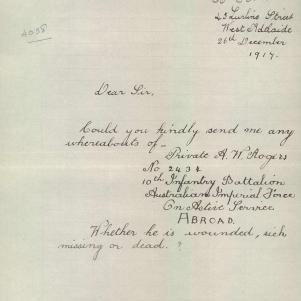 45 Lurline Street
West Adelaide
26th December
1917.
4058
Dear Sir,
Could you kindly send me any
whereabouts of -
Private A. W. Rogers
No 2434
10th Infantry Battalion
Australian Imperial Force
On Active Service
ABROAD.
Whether he is wounded, sick
missing or dead.?